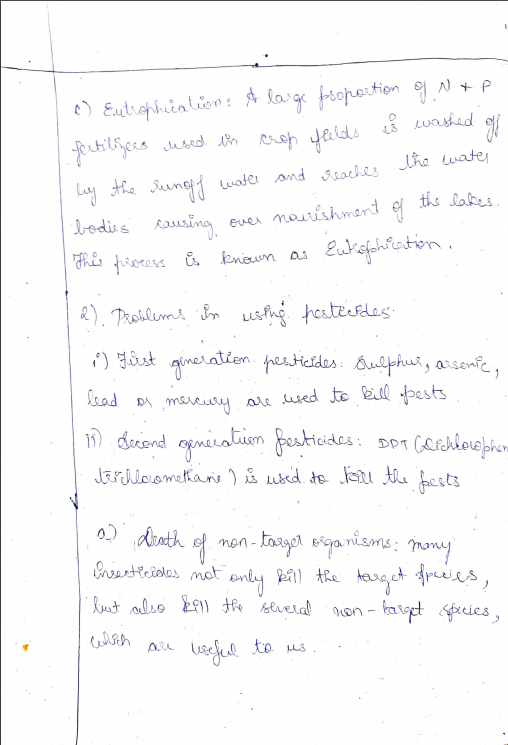 c) Eutrophication: A large proportion of N + P
fertilizers used in crop fields is washed off
by the runoff water and reaches the water
bodies causing over nourishment of the lakes.
This process is known as Eutrophication.
2). Problems in using pesticides.
i) First generation pesticides: Sulphur, arsenic,
lead or mercury are used to kill pests
ii) Second generation pesticides: DDT (Dichlorophen
trichloromethane) is used to kill the pests
a) Death of non-target organisms: many
insecticides not only kill the target species,
but also kill the several non-target species,
which are useful to us.